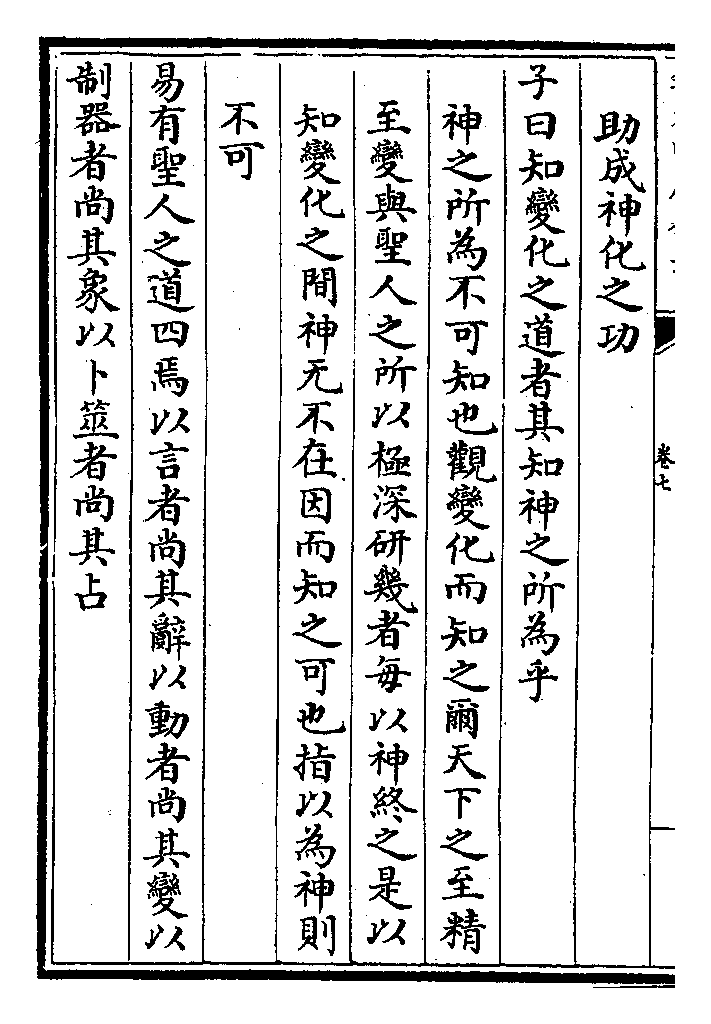 卷七
助成神化之功
子曰知變化之道者其知神之所為乎
神之所為不可知也觀變化而知之爾天下之至精
至變與聖人之所以極深研幾者每以神終之是以
知變化之間神无不在因而知之可也指以為神則
不可
易有聖人之道四焉以言者尚其辭以動者尚其變以
制器者尚其象以卜筮者尚其占